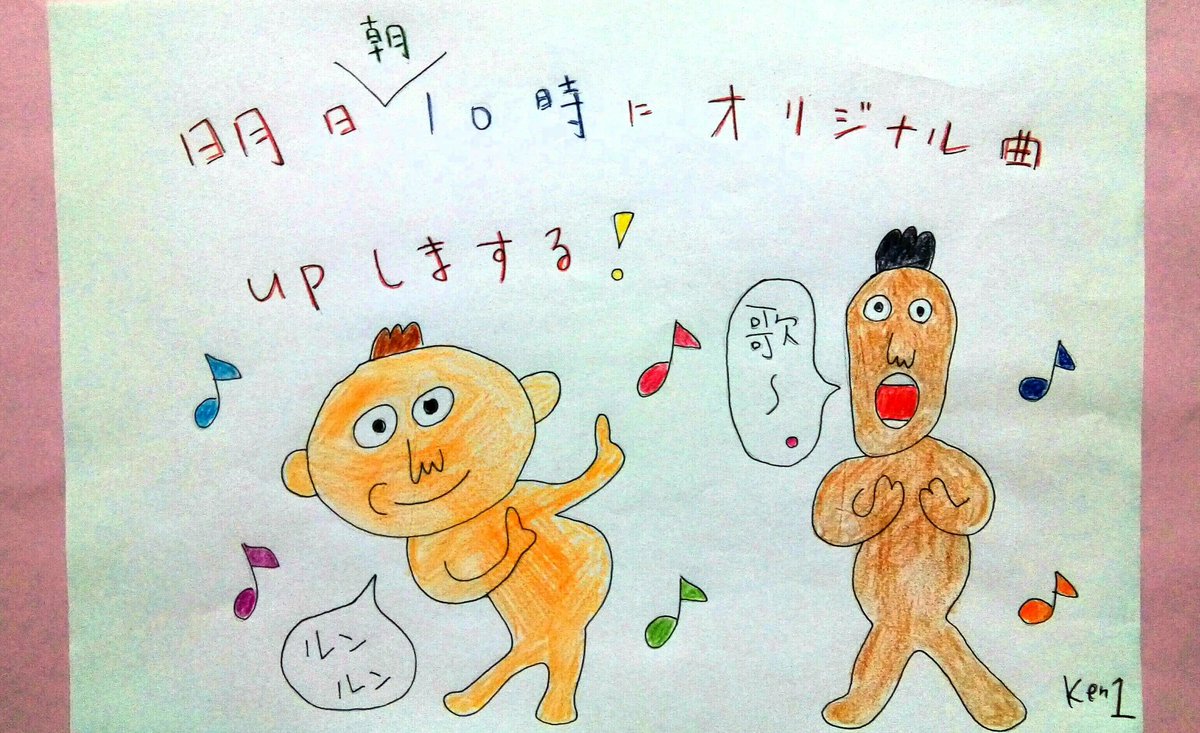 明日朝10時にオリジナル曲
upしまする!
歌〜。
ルン
ルン
Ken1